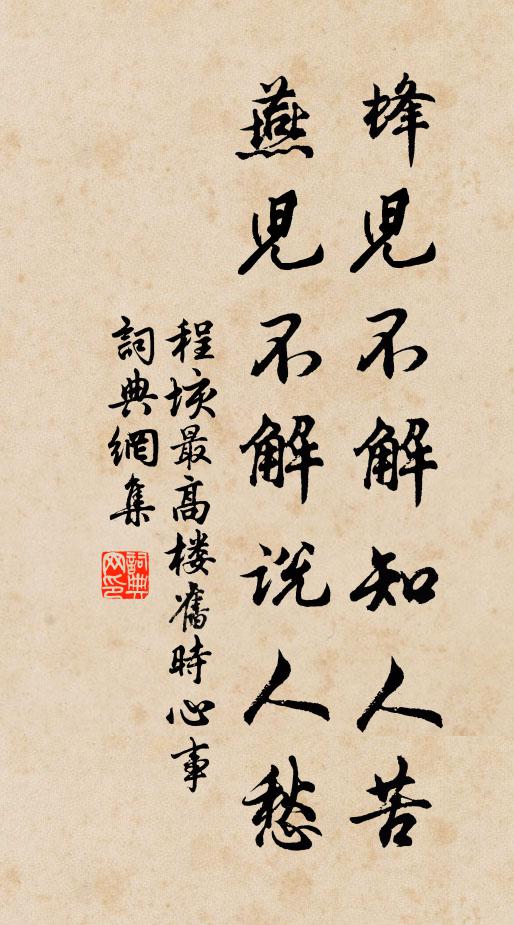 蜂児不解知人苦
燕児不解说人愁
程垓最高楼舊時心事
詞典網集
詞典網印